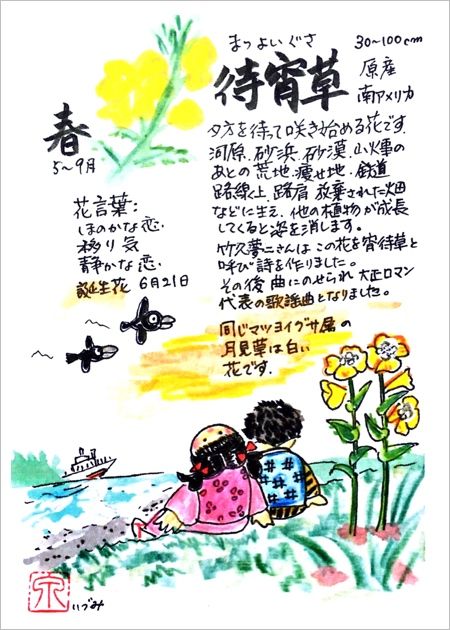 まつよいぐさ
待宵草
30~100cm
原産
南アメリカ
春
5~9月
夕方を待って咲き始める花です。
河原、砂浜、砂漠、山火事の
あとの荒地、痩せ地、鉄道
路線上、路肩、放棄された畑
などに生え、他の植物が成長
してくると姿を消します。
竹久夢二さんはこの花を宵待草と
呼び詩を作りました。
その後曲にのせられ大正ロマン
代表の歌謡曲となりました。
同じマツヨイグサ属の
月見草は白い
花です。
花言葉:
ほのかな恋.
移り気
静かな恋.
誕生花 6月21日
いづみ